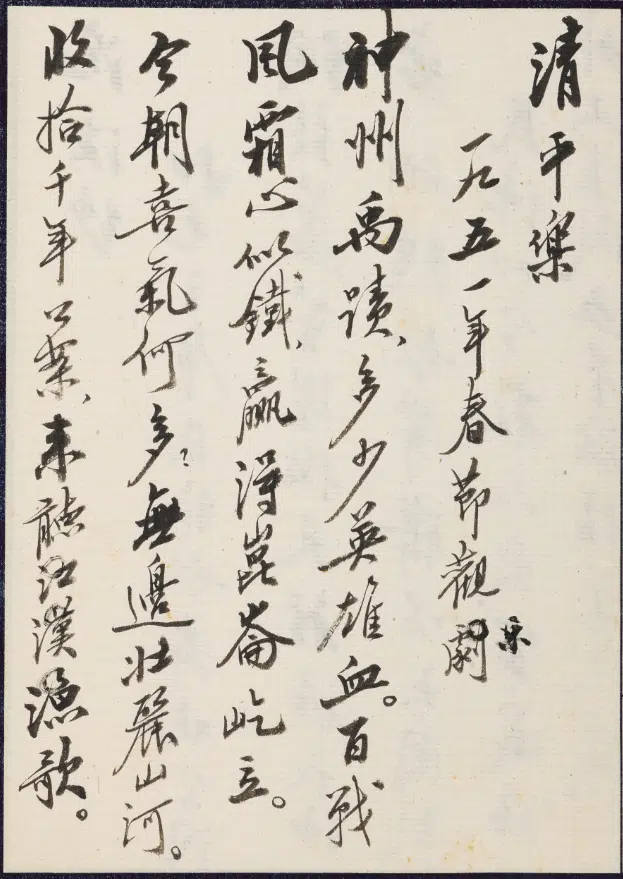 清平樂
一九五一年春節觀劇
神州禹蹟、多少英雄血。百戰
風霜心似鐵、贏得崑崙屹立。
今朝喜氣何多、無邊壯麗山河。
收拾千年公案、來聽江漢漁歌。